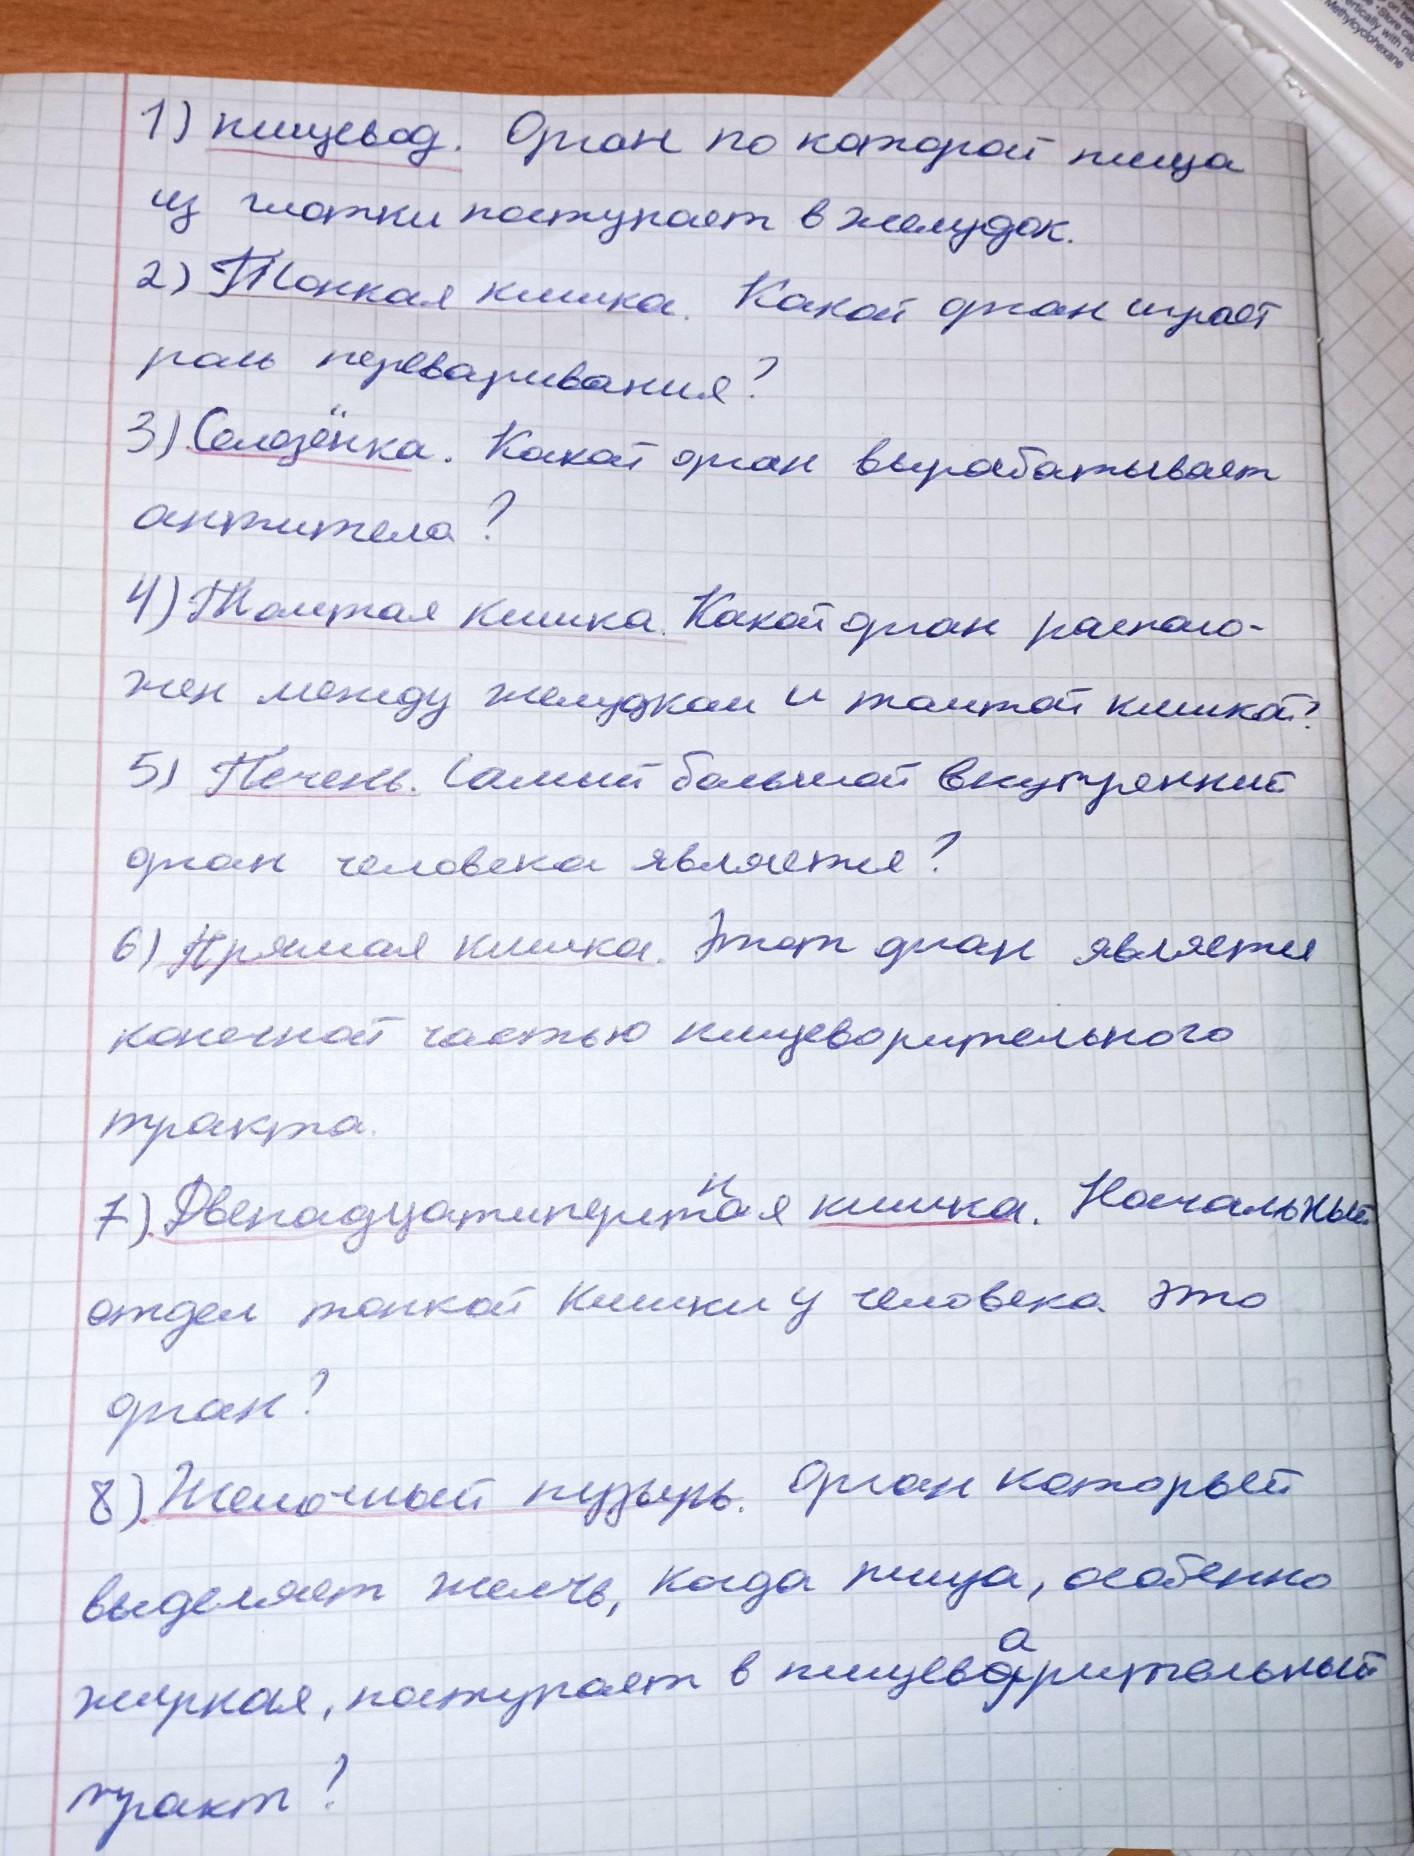 1) пищевод. Орган по которой пища
из глотки поступает в желудок.
2) Тонкая кишка. Какой орган играет
роль переваривания?
3) Селезёнка. Какой орган вырабатывает
антитела?
4) Толстая кишка. Какой орган располо-
жен между желудком и толстой кишкой?
5) Печень. Самый большой внутренний
орган человека является?
6) Прямая кишка. Этот орган является
конечной частью пищеворительного
тракта.
7) Двенадцатиперстная кишка. Начальный
отдел тонкой кишки у человека это
орган?
8) Желочный пузырь. Орган который
выделяет желчь, когда пища, особенно
жирная, поступает в пищеварительный
тракт?
Methylcyclohexane